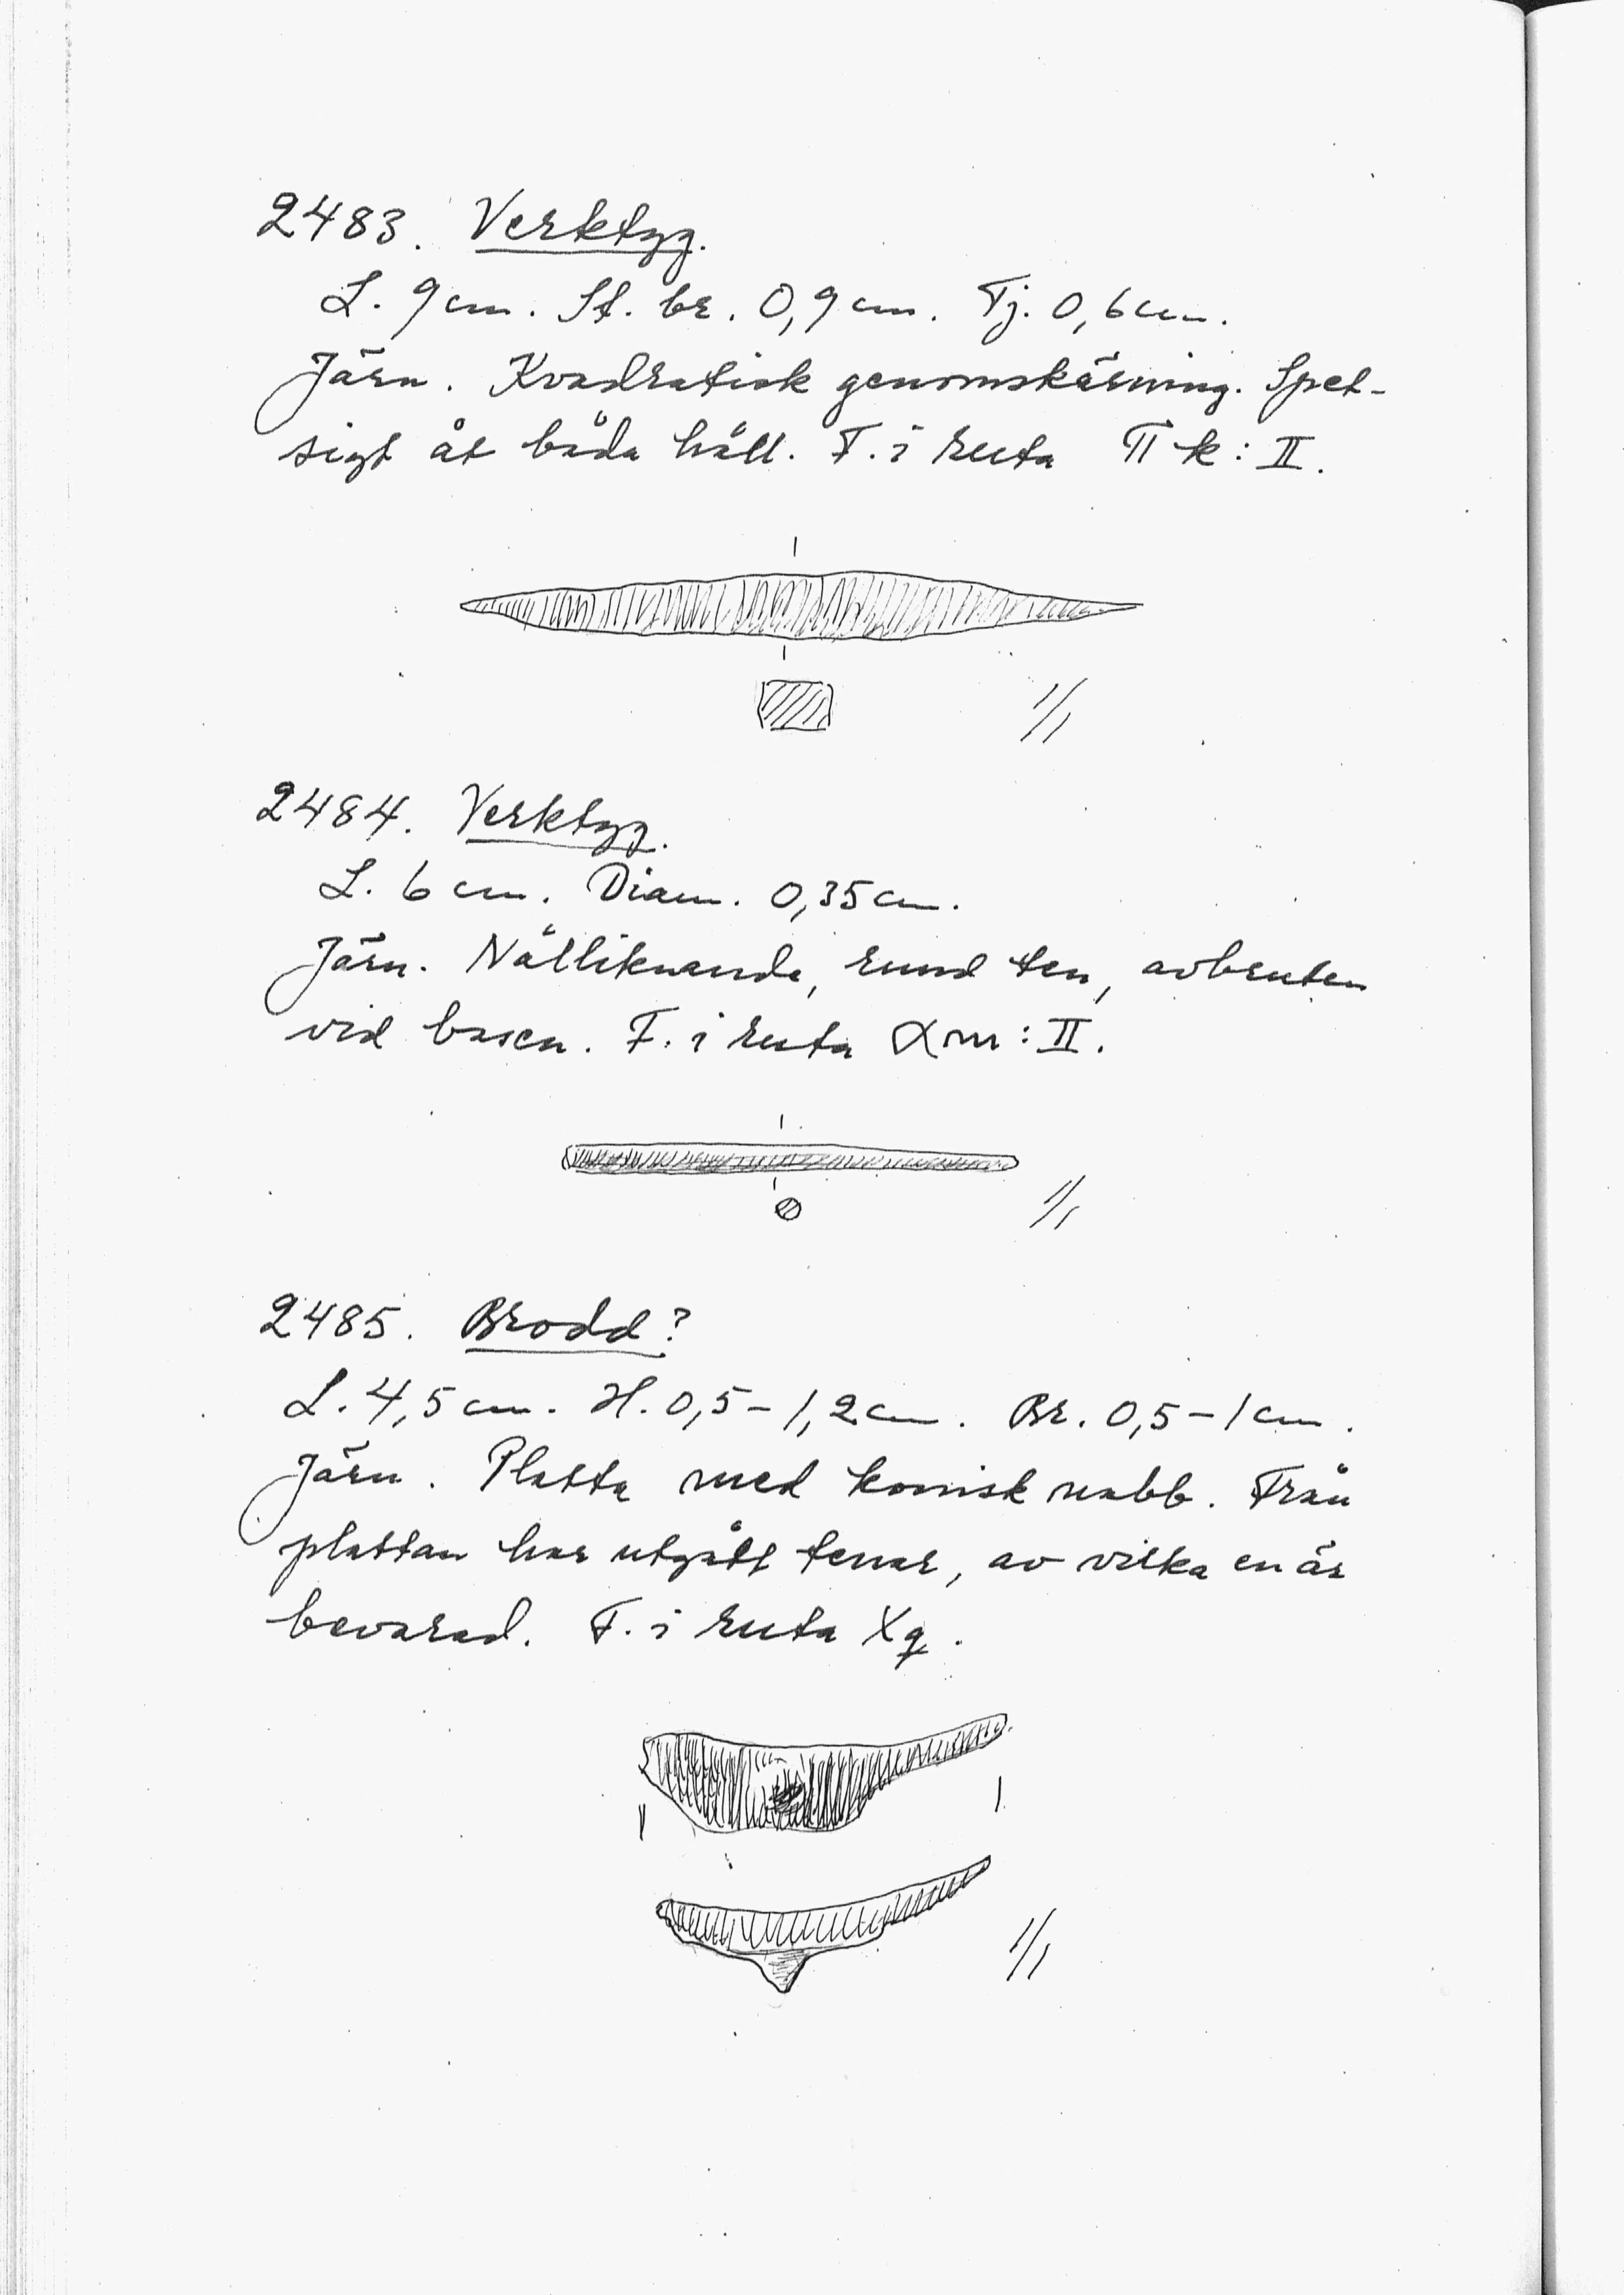 2483. Verktyg.
L. 9 cm. St. br. 0,9 cm. Tj. 0,6 cm.
Järn. Kvadratisk genomskärning. Spet-
sigt åt båda håll. F. i ruta π k : II.
1/1
2484. Verktyg.
L. 6 cm. Diam. 0,35 cm.
Järn. Nålliknande, rund ten, avbruten
vid basen. F. i ruta α m : II.
1/1
2485. Brodd?
L. 4,5 cm. H. 0,5 – 1,2 cm. Br. 0,5 – 1 cm.
Järn. Platta med konisk nabb. Från
plattan har utgått tenar, av vilka en är
bevarad. F. i ruta Xq.
1/1